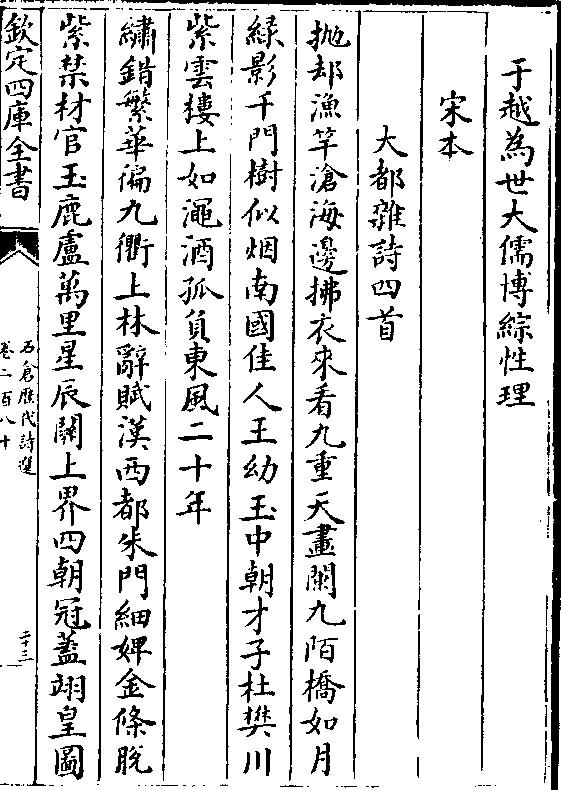 于越為世大儒博綜性理
宋本
大都雜詩四首
抛却漁竿滄海邊拂衣來看九重天畫闌九陌橋如月
緑影千門樹似烟南國佳人王幼玉中朝才子杜樊川
紫雲樓上如澠酒孤負東風二十年
繡錯繁華徧九衢上林辭賦漢西都朱門細婢金條脫
紫禁材官玉鹿盧萬里星辰闗上界四朝冠蓋翊皇圖
欽定四庫全書
石倉歷代詩選
卷二百八十
二十三